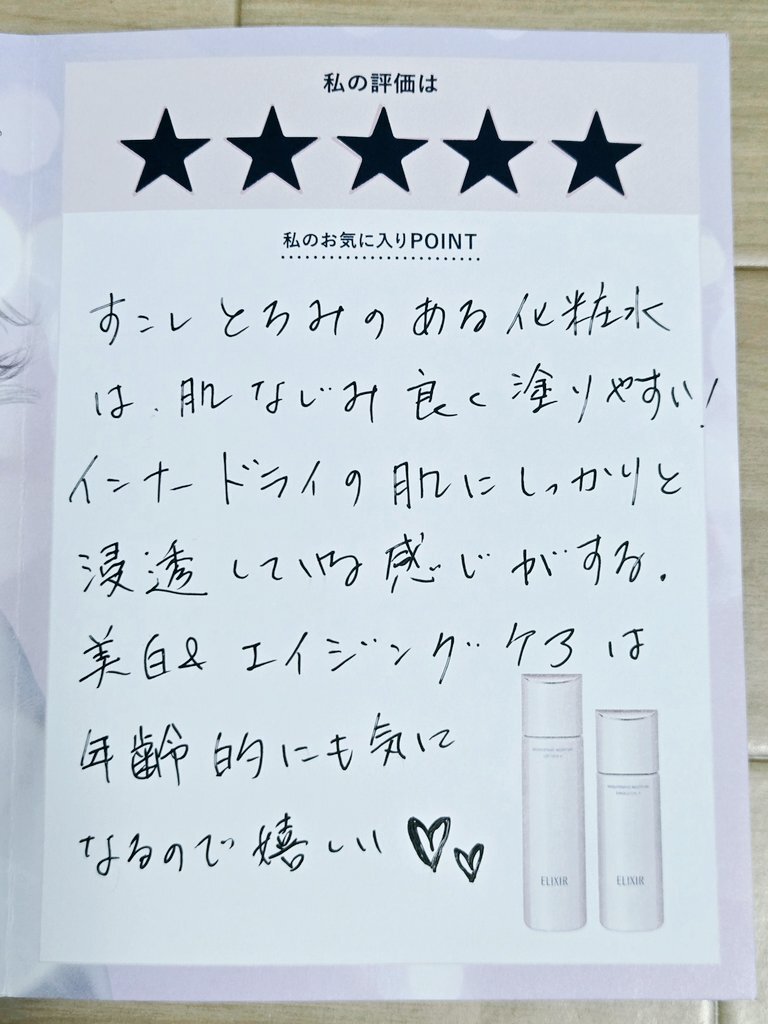 私の評価は
★★★★★
私のお気に入りPOINT
すこしとろみのある化粧水
は、肌なじみ良く塗りやすい!
インナードライの肌にしっかりと
浸透している感じがする。
美白&エイジングケアは
年齢的にも気に
なるので嬉しい♡♡
ELIXIR
ELIXIR